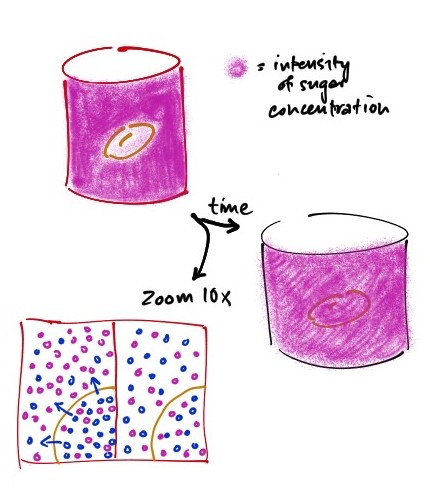 = intensity
of sugar
concentration
time
Zoom 10x